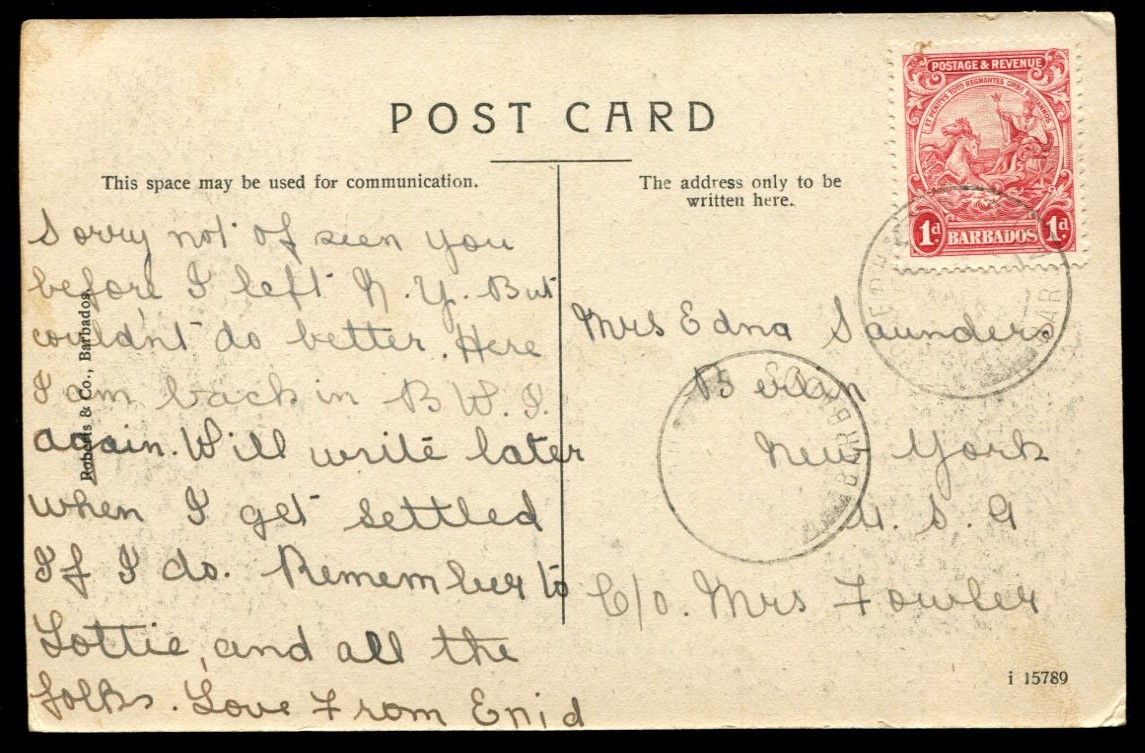 POST CARD
This space may be used for communication.
The address only to be
written here.
Sorry not of seen you
before I left N.Y. But
couldn't do better. Here
I am back in B W. I.
again. Will write later
when I get settled
If I do. Remember to
Lottie, and all the
folks. Love From Enid
Roberts & Co., Barbados.
POSTAGE & REVENUE
ET PENITUS TOTO REGNANTES ORBE BRITANNOS
1d BARBADOS 1d
Mrs Edna Saunders
New York
U. S. A
C/o. Mrs Fowler
BARBADOS
BAR
i 15789